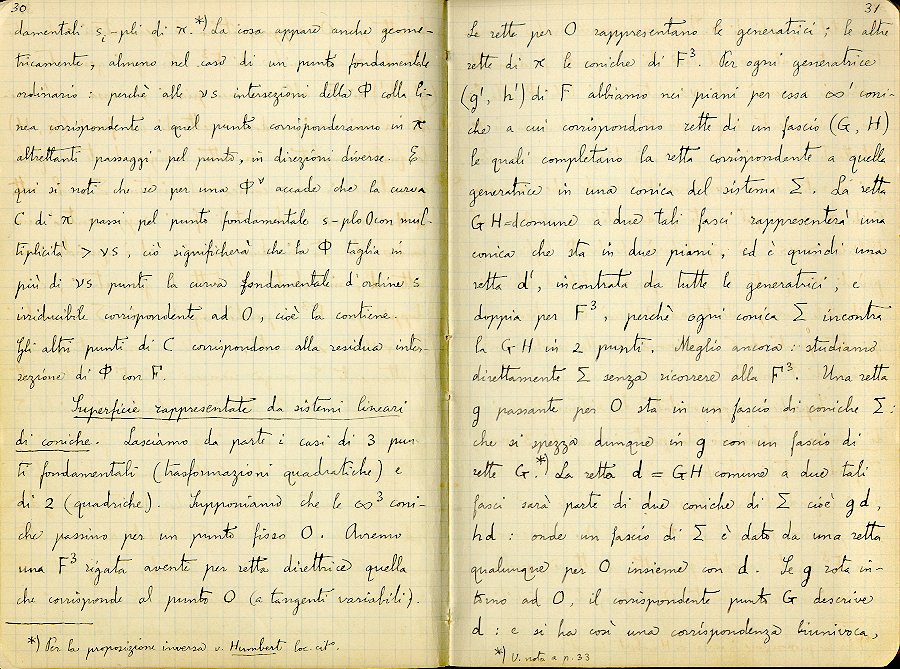 30
damentali sᵢ-pli di π.*) La cosa appare anche geome-
tricamente, almeno nel caso di un punto fondamentale
ordinario: perchè alle νs intersezioni della Φ colla li-
nea corrispondente a quel punto corrisponderanno in π
altrettanti passaggi pel punto, in direzioni diverse. E
qui si noti che se per una Φ^ν accade che la curva
C di π passi pel punto fondamentale s-plo O con mul-
tiplicità > νs, ciò significherà che la Φ taglia in
più di νs punti la curva fondamentale d'ordine s
irriducibile corrispondente ad O, cioè la contiene.
Gli altri punti di C corrispondono alla residua inter-
sezione di Φ con F.
Superficie rappresentate da sistemi lineari
di coniche. Lasciamo da parte i casi di 3 pun-
ti fondamentali (trasformazioni quadratiche) e
di 2 (quadriche). Supponiamo che le ∞³ coni-
che passino per un punto fisso O. Avremo
una F³ rigata avente per retta direttrice quella
che corrisponde al punto O (a tangenti variabili).
*) Per la proposizione inversa v. Humbert loc. cit°.
31
Le rette per O rappresentano le generatrici; le altre
rette di π le coniche di F³. Per ogni generatrice
(g', h') di F abbiamo nei piani per essa ∞¹ coni-
che a cui corrispondono rette di un fascio (G, H)
le quali completano la retta corrispondente a quella
generatrice in una conica del sistema Σ. La retta
GH=d comune a due tali fasci rappresenterà una
conica che sta in due piani, ed è quindi una
retta d', incontrata da tutte le generatrici, e
doppia per F³, perchè ogni conica Σ incontra
la GH in 2 punti. Meglio ancora: studiamo
direttamente Σ senza ricorrere alla F³. Una retta
g passante per O sta in un fascio di coniche Σ:
che si spezza dunque in g con un fascio di
rette G.*) La retta d = GH comune a due tali
fasci sarà parte di due coniche di Σ cioè gd,
hd: onde un fascio di Σ è dato da una retta
qualunque per O insieme con d. Se g rota in-
torno ad O, il corrispondente punto G descrive
d: e si ha così una corrispondenza biunivoca,
*) V. nota a p. 33